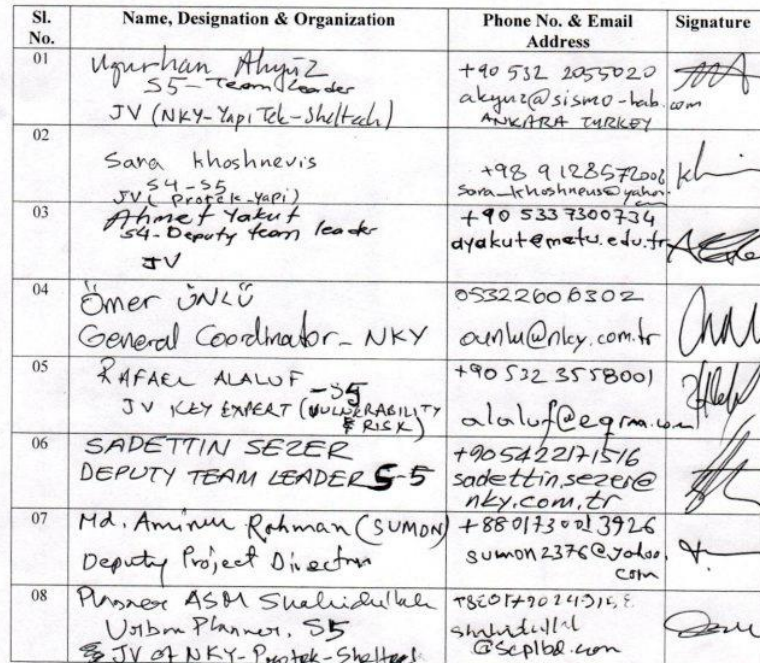 Sl. No. Name, Designation & Organization Phone No. & Email Address Signature
01
Ugurhan Akyüz
S5-Team leader
JV (NKY-Yapi Tek-Sheltech)
+90 532 2055020
akyuz@sismo-lab.com
ANKARA TURKEY
02
Sara khoshnevis
S4-S5
JV (Protek-Yapi)
+98 9128572006
03
Ahmet Yakut
S4-Deputy team leader
JV
+90 533 7300734
ayakut@metu.edu.tr
04
Ömer ÜNLÜ
General Coordinator_ NKY
05322606302
ounlu@nky.com.tr
05
RAFAEL ALALUF -S5
JV KEY EXPERT (VULNERABILITY & RISK)
+90 532 3558001
06
SADETTIN SEZER
DEPUTY TEAM LEADER S-5
+905422171516
sadettin.sezer@
nky.com.tr
07
Md. Aminur Rahman (SUMON)
Deputy Project Director
+8801730013926
sumon2376@yahoo.
com
08
Planner ASM Shahidullah
Urban Planner, S5
JV of NKY-Protek-Sheltech
@scplbd.com